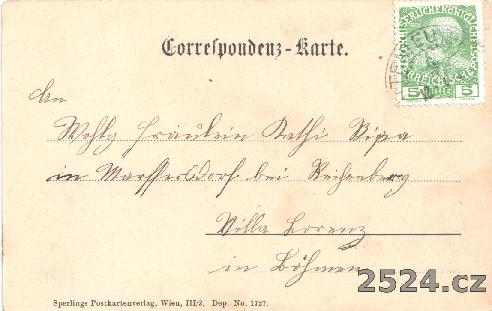 Correspondenz-Karte.
KAISERLICHE KÖNIGLICHE
ÖSTERREICHISCHE
5 5
An
Wohlg Fräulein Kathi
in Maffersdorf bei Reichenberg
Villa Lorenz
in Böhmen
2524.cz
Sperlings Postkartenverlag, Wien, III/3. Dep. No. 1727.